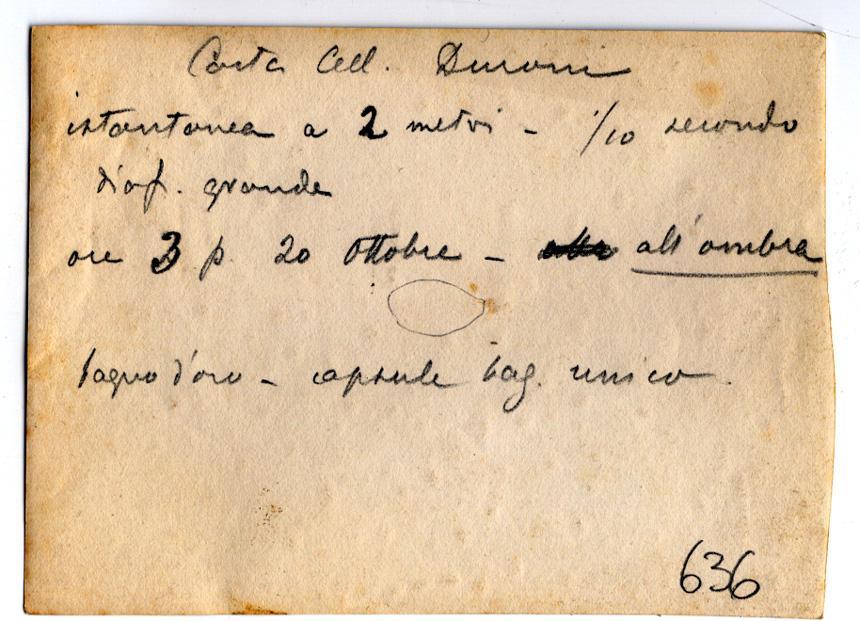 Carta Cell. Duroni
istantanea a 2 metri - 1/10 secondo
diaf. grande
ore 3 p. 20 Ottobre - all'ombra
bagno d'oro - capsule bag. unico.
636